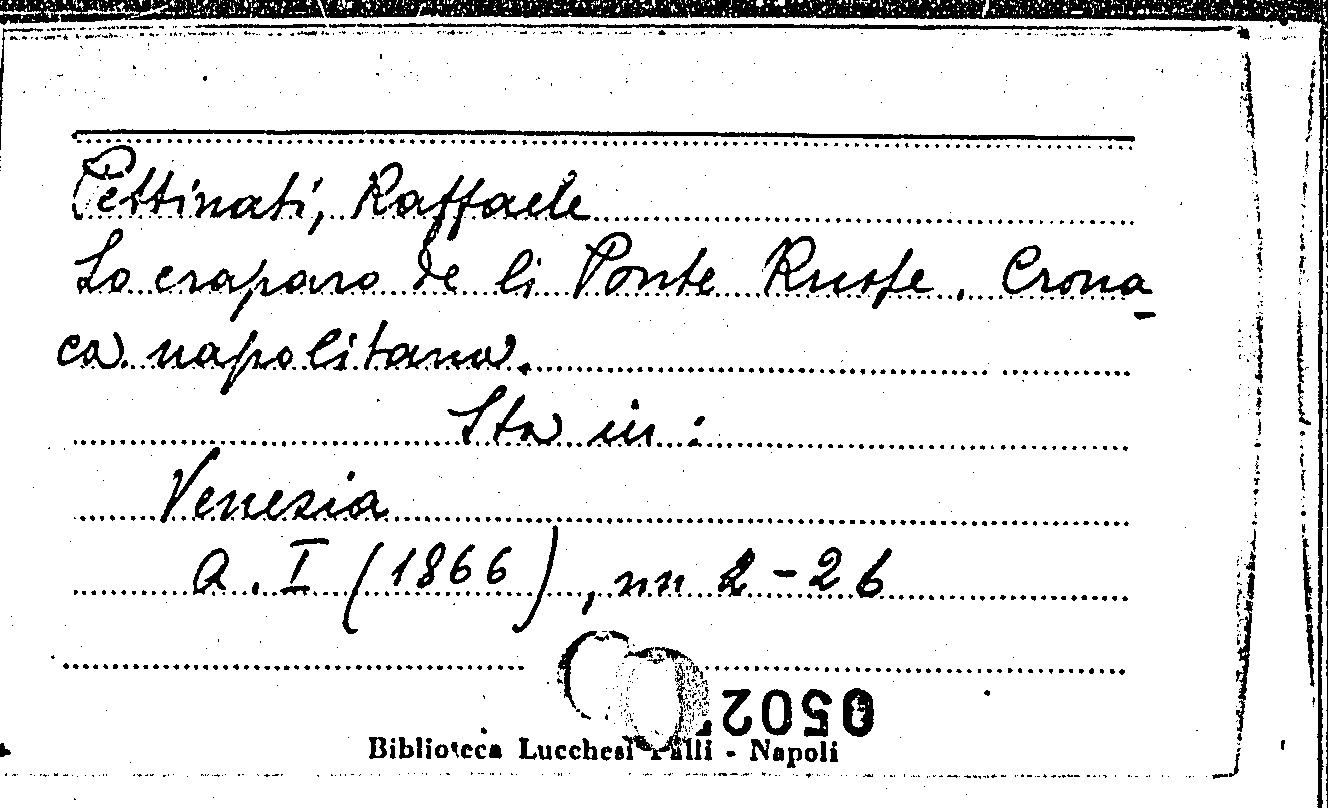 Pettinati, Raffaele
Lo craparo de li Ponte Russe. Crona-
ca napolitana.
Sta in:
Venezia
a. I (1866), nn 2-26
Biblioteca Lucchesi Palli - Napoli